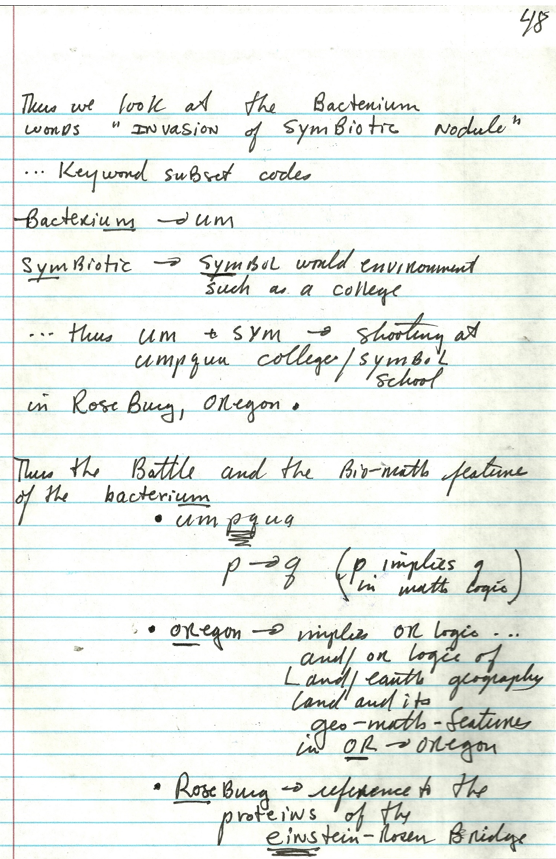 48
Thus we look at the Bacterium
words "INVASION of SymBiotic Nodule"
... Keyword subset codes
Bacterium → um
SymBiotic → SymBOL would environment
such as a college
... thus um + sym → shooting at
umpqua college/symBOL
School
in RoseBurg, Oregon.
Thus the Battle and the Bio-math feature
of the bacterium
• umpqua
p → q (p implies q
in math logic)
• ORegon → implies OR logic ...
and/or logic of
Land/earth geography
land and its
geo-math-features
in OR → Oregon
• RoseBurg → reference to the
proteins of the
einstein-Rosen Bridge